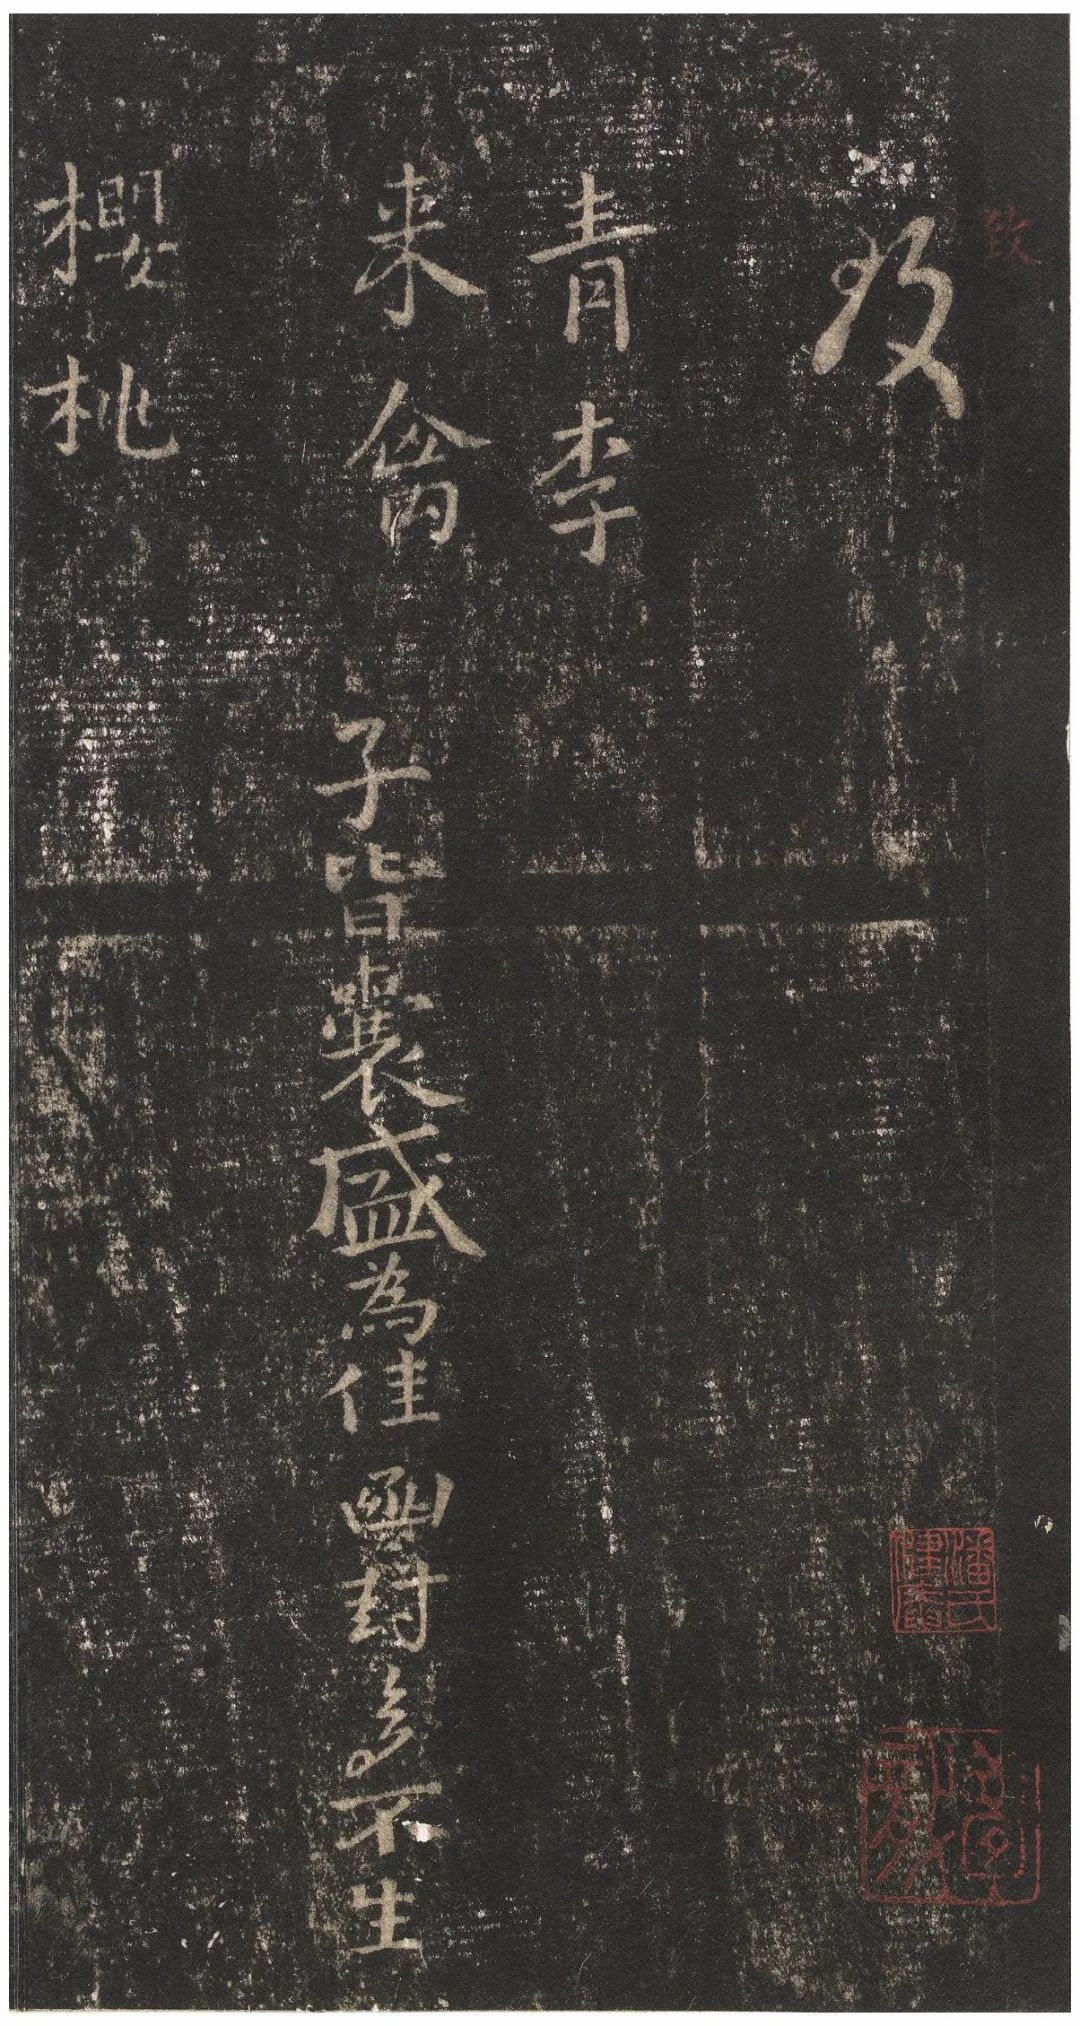 致
青李
来禽
櫻桃
子皆囊盛為佳函封多不生
致
潘氏